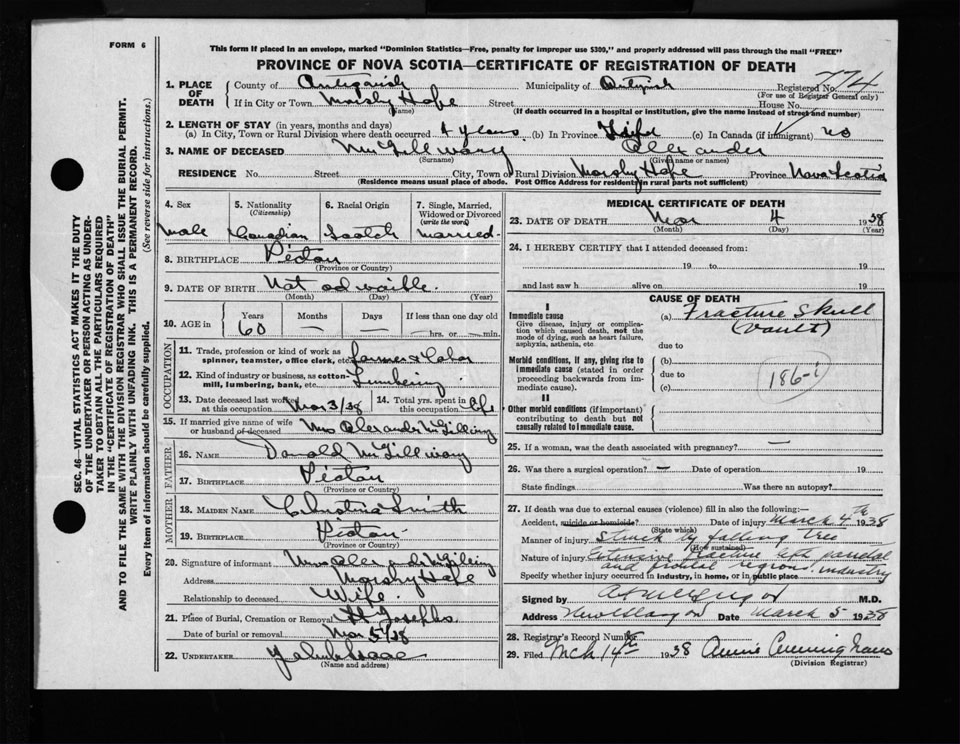 FORM 6
This form if placed in an envelope, marked "Dominion Statistics—Free, penalty for improper use $300," and properly addressed will pass through the mail "FREE"
PROVINCE OF NOVA SCOTIA—CERTIFICATE OF REGISTRATION OF DEATH
SEC. 46—VITAL STATISTICS ACT MAKES IT THE DUTY
OF THE UNDERTAKER OR PERSON ACTING AS UNDER-
TAKER TO OBTAIN ALL THE PARTICULARS REQUIRED
IN THE "CERTIFICATE OF REGISTRATION OF DEATH"
AND TO FILE THE SAME WITH THE DIVISION REGISTRAR WHO SHALL ISSUE THE BURIAL PERMIT.
WRITE PLAINLY WITH UNFADING INK. THIS IS A PERMANENT RECORD.
Every item of information should be carefully supplied. (See reverse side for instructions.)
1. PLACE OF DEATH County of Antigonish Municipality of Registered No. 774
(For use of Registrar General only)
If in City or Town Marshy Hope Street House No.
(Name) (If death occurred in a hospital or institution, give the name instead of street and number)
2. LENGTH OF STAY (in years, months and days)
(a) In City, Town or Rural Division where death occurred 4 years (b) In Province Life (c) In Canada (if immigrant) no
3. NAME OF DECEASED McGillivary Alexander
(Surname) (Given name or names)
RESIDENCE No. Street City, Town or Rural Division Marshy Hope Province Nova Scotia
(Residence means usual place of abode. Post Office Address for residents in rural parts not sufficient)
4. Sex Male
5. Nationality (Citizenship) Canadian
6. Racial Origin Scotch
7. Single, Married, Widowed or Divorced (write the word) married
8. BIRTHPLACE Pictou
(Province or Country)
9. DATE OF BIRTH Not
(Month) (Day) (Year)
10. AGE in Years 60 Months — Days — If less than one day old hrs. or min.
OCCUPATION
11. Trade, profession or kind of work as spinner, teamster, office clerk, etc. farmer &
12. Kind of industry or business, as cotton-mill, lumbering, bank, etc. Lumbering
13. Date deceased last worked at this occupation Mar 3/38 14. Total yrs. spent in this occupation Life
15. If married give name of wife or husband of deceased Mrs Alexander McGillivary
FATHER
16. NAME Donald McGillivary
17. BIRTHPLACE Pictou
(Province or Country)
MOTHER
18. MAIDEN NAME Christina Smith
19. BIRTHPLACE Pictou
(Province or Country)
20. Signature of informant Mrs Alexander McGillivary
Address Marshy Hope
Relationship to deceased Wife.
21. Place of Burial, Cremation or Removal St Josephs
Date of burial or removal Mar 5/38
22. UNDERTAKER
(Name and address)
MEDICAL CERTIFICATE OF DEATH
23. DATE OF DEATH Mar 4 1938
(Month) (Day) (Year)
24. I HEREBY CERTIFY that I attended deceased from:
19 to 19
and last saw h alive on 19
CAUSE OF DEATH
I
Immediate cause
Give disease, injury or complication which caused death, not the mode of dying, such as heart failure, asphyxia, asthenia, etc.
(a) Fracture Skull
(vault)
due to
Morbid conditions, if any, giving rise to immediate cause (stated in order proceeding backwards from immediate cause).
(b)
due to
(c)
186-i
II
Other morbid conditions (if important) contributing to death but not causally related to immediate cause.
25. If a woman, was the death associated with pregnancy? —
26. Was there a surgical operation? — Date of operation 19
State findings Was there an autopsy?
27. If death was due to external causes (violence) fill in also the following:—
Accident, suicide or homicide? Date of injury March 4th 1938
(State which)
Manner of injury Struck by falling tree
(How sustained)
Nature of injury Extensive fracture left parietal
and frontal regions. industry
Specify whether injury occurred in industry, in home, or in public place
Signed by M.D.
Address New Glasgow Date March 5 1938
28. Registrar's Record Number
29. Filed Mch 14th 1938 Annie Cumming
(Division Registrar)